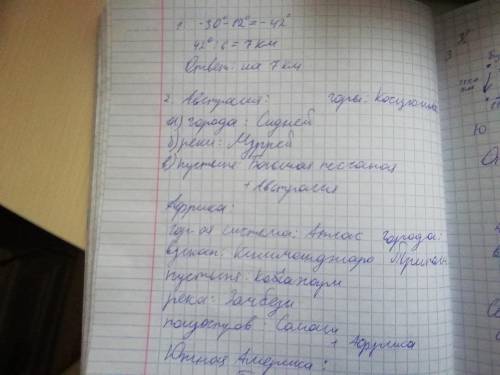 1. -30°-12°=-42°
42°:6=7км
Ответ: на 7 км
2. Австралия: горы: Косцюшко
а) города: Сидней
б) реки: Муррей
в) пустыне: Большая песчаная
+ Австралия
Африка:
горная система: Атлас города:
вулкан: Килиманджаро
Пустыне: Калахари
река: Замбези
полуостров: Сомали
+ Африка
Южная Америка:
3.
Ю